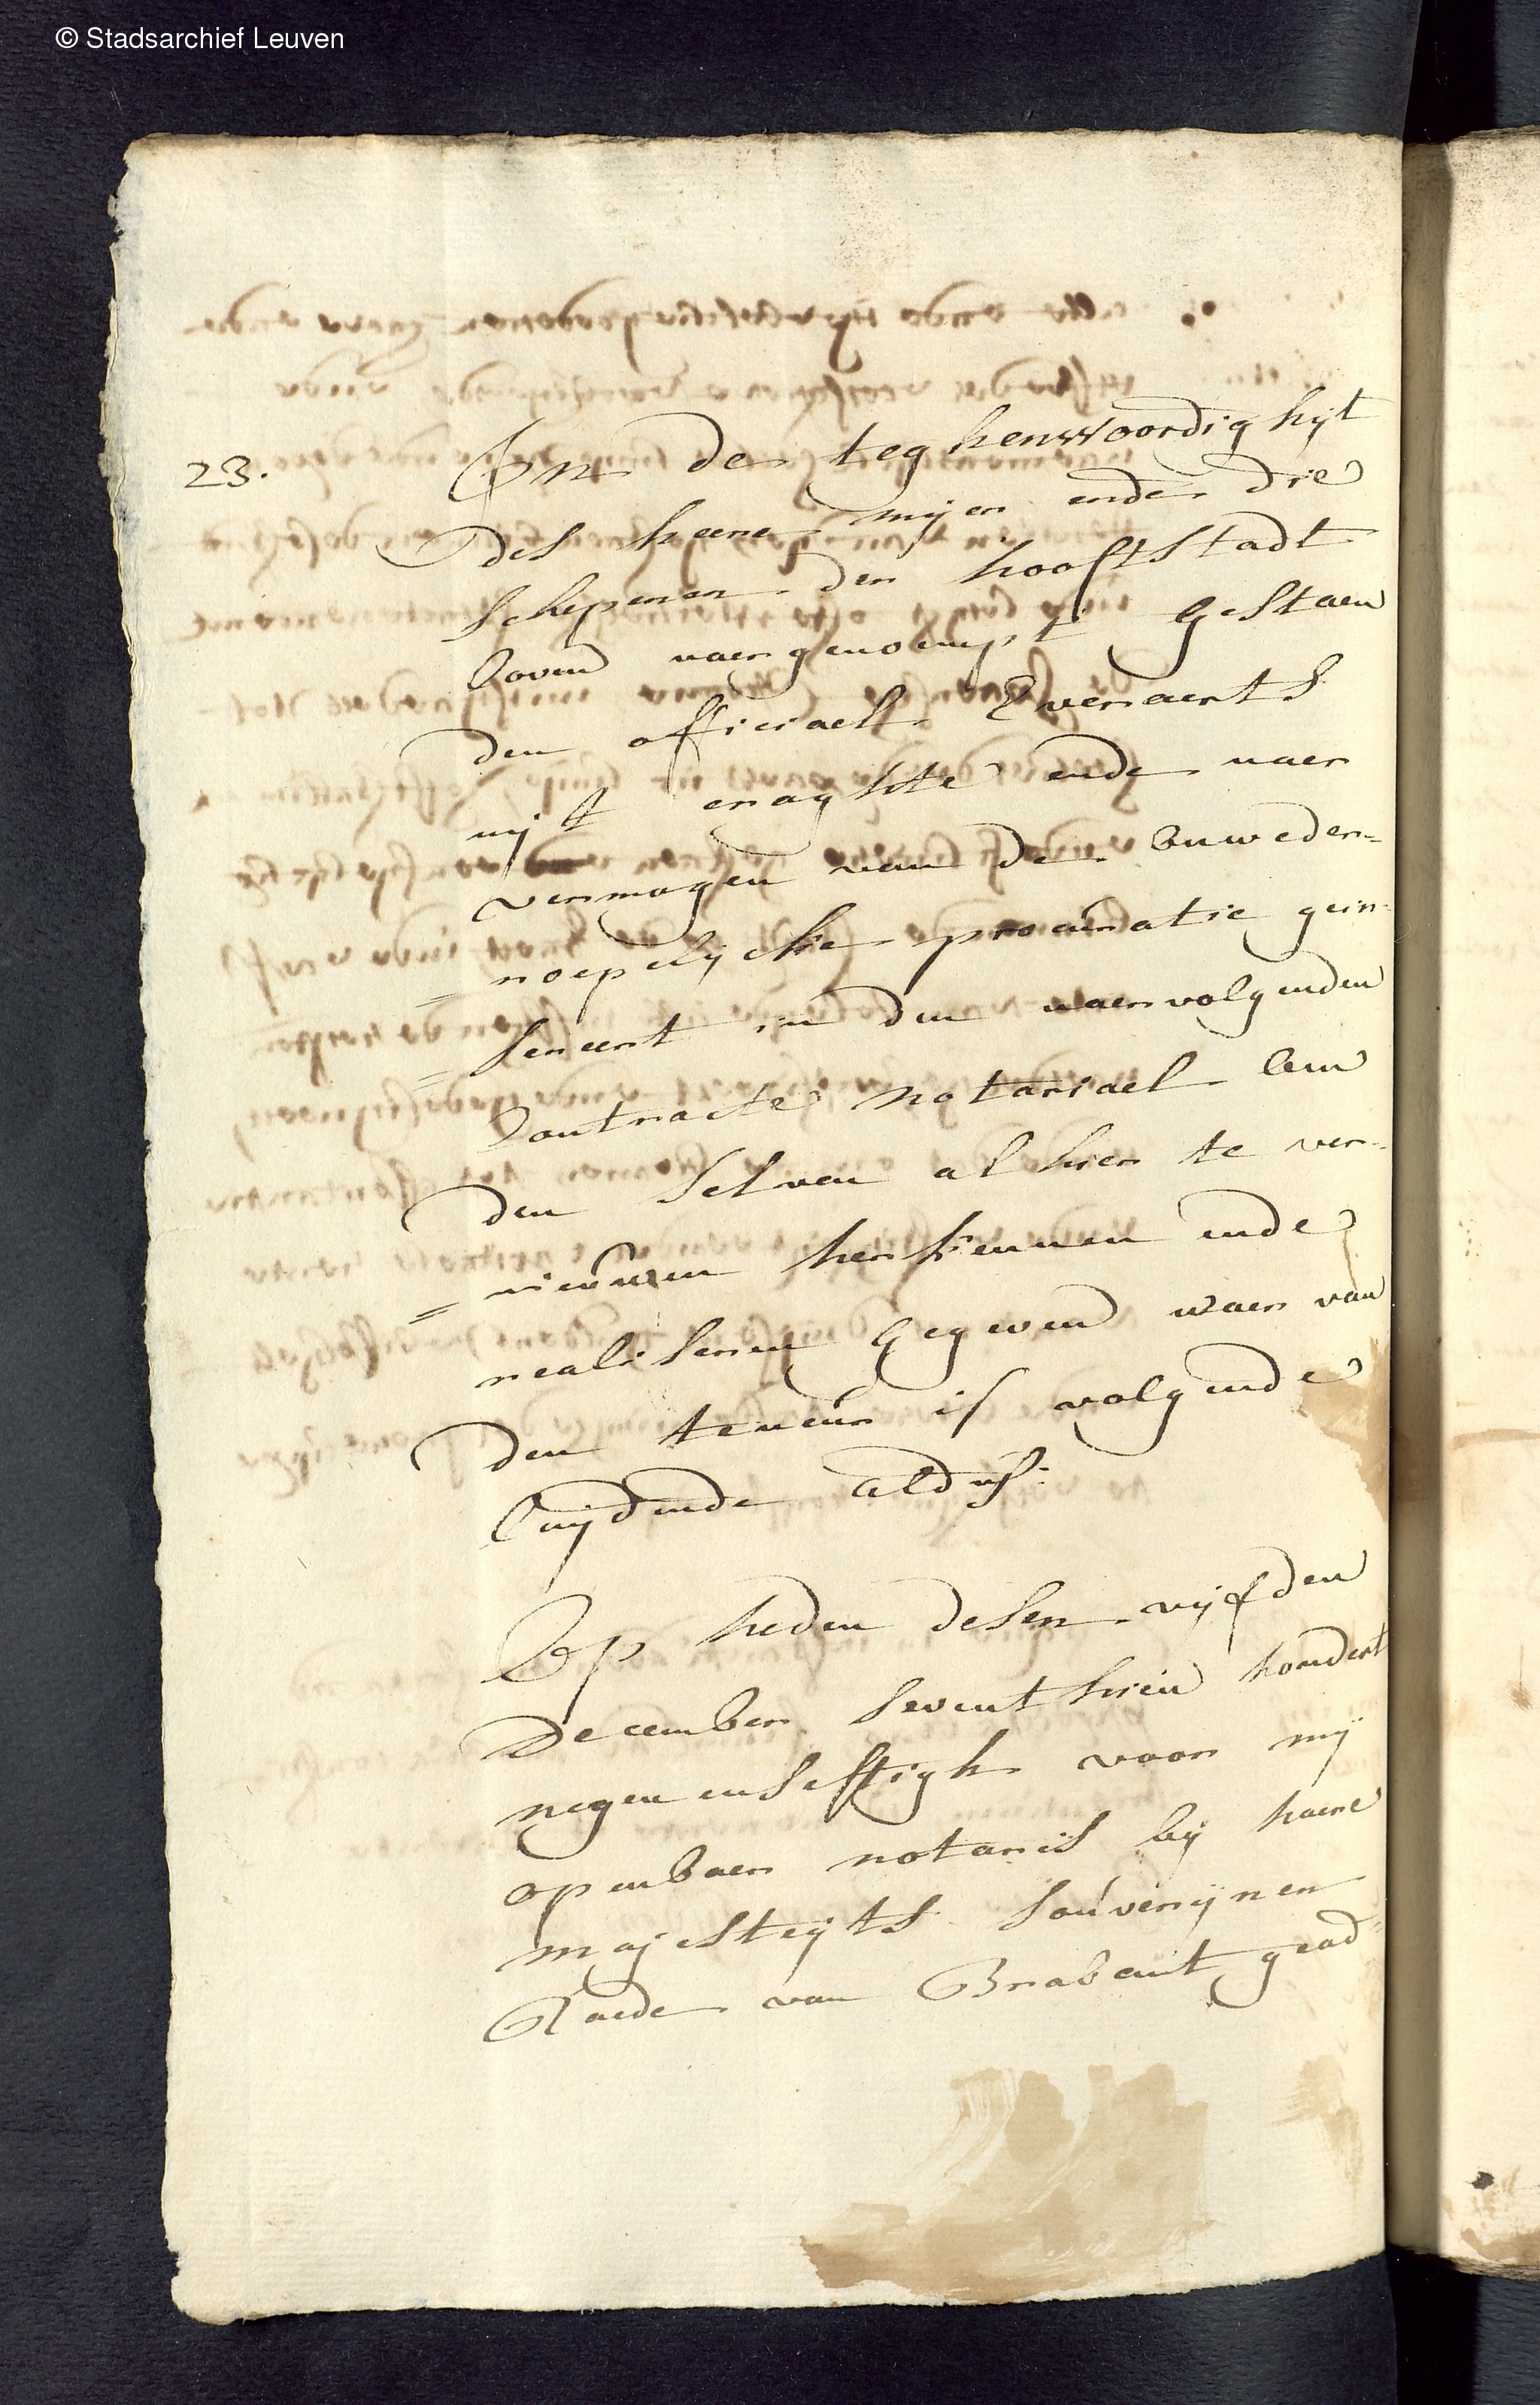 © Stadsarchief Leuven
23.
In de teghenwoordighijt
des heere mijer ende drie
schepenen der hooftstadt
loven naergenoempt gestaen
den officiael Everaerts
uijt craghte ende naer
vermogen van de onweder=
=roepelijcke procuratie gein=
=sereert in den naervolgenden
Contracte notariael om
den selven alhier te ver=
=nieuwen herkennen ende
realiseren gegeven waer van
den teneur is volgende
luijdende aldus:
Op heden desen vijfden
December seventhien hondert
negenensestigh voor mij
openbaer notaris bij haere
majesteijts souverijnen
Raede van Brabant gead=